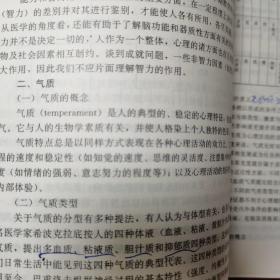 （智力）的差别并对其进行鉴别，才能使人各有所用，各
从医学的角度看，还能有助于了解脑功能和器质性方面
力并不是决定一切的。人作为一个整体，心理的诸方面也
物及社会因素相互制约。谈到成就问题，一些非智力因素
大作用，因此我们不应片面理解智力的作用。
二、气质
（一）气质的概念
气质（temperament）是人的典型的、稳定的心理特征，
气，它与人的生物学素质有关，并使人格染上个人独特的色
气质特点总是以同样方式表现在各种心理活动的动力
程的速度和稳定性（如知觉的速度、思维的灵活度、注意
度（如情绪的强弱、意志努力的程度等）以及心理活动的
内部体验）。
（二）气质类型
关于气质的分型有多种提法，有人认为与体型有关，
名医学家希波克拉底按人的四种体液（血液、粘液、
质，提出多血质、粘液质、胆汁质和抑郁质四种类型
们日常生活中能见到这四种气质的典型代表。这四种